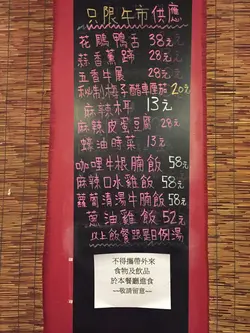 只限午市供應
花鵰鴨舌 38元
蒜香燻蹄 28元
五香牛𦟌 28元
秘制梅子醋車厘茄 20元
麻辣木耳 13元
麻辣皮蛋豆腐 28元
蠔油時菜 13元
咖哩牛根腩飯 58元
麻辣口水雞飯 58元
蘿蔔清湯牛腩飯 58元
蔥油雞飯 52元
以上飯餐跟是日例湯
不得攜帶外來
食物及飲品
於本餐廳進食
---敬請留意---